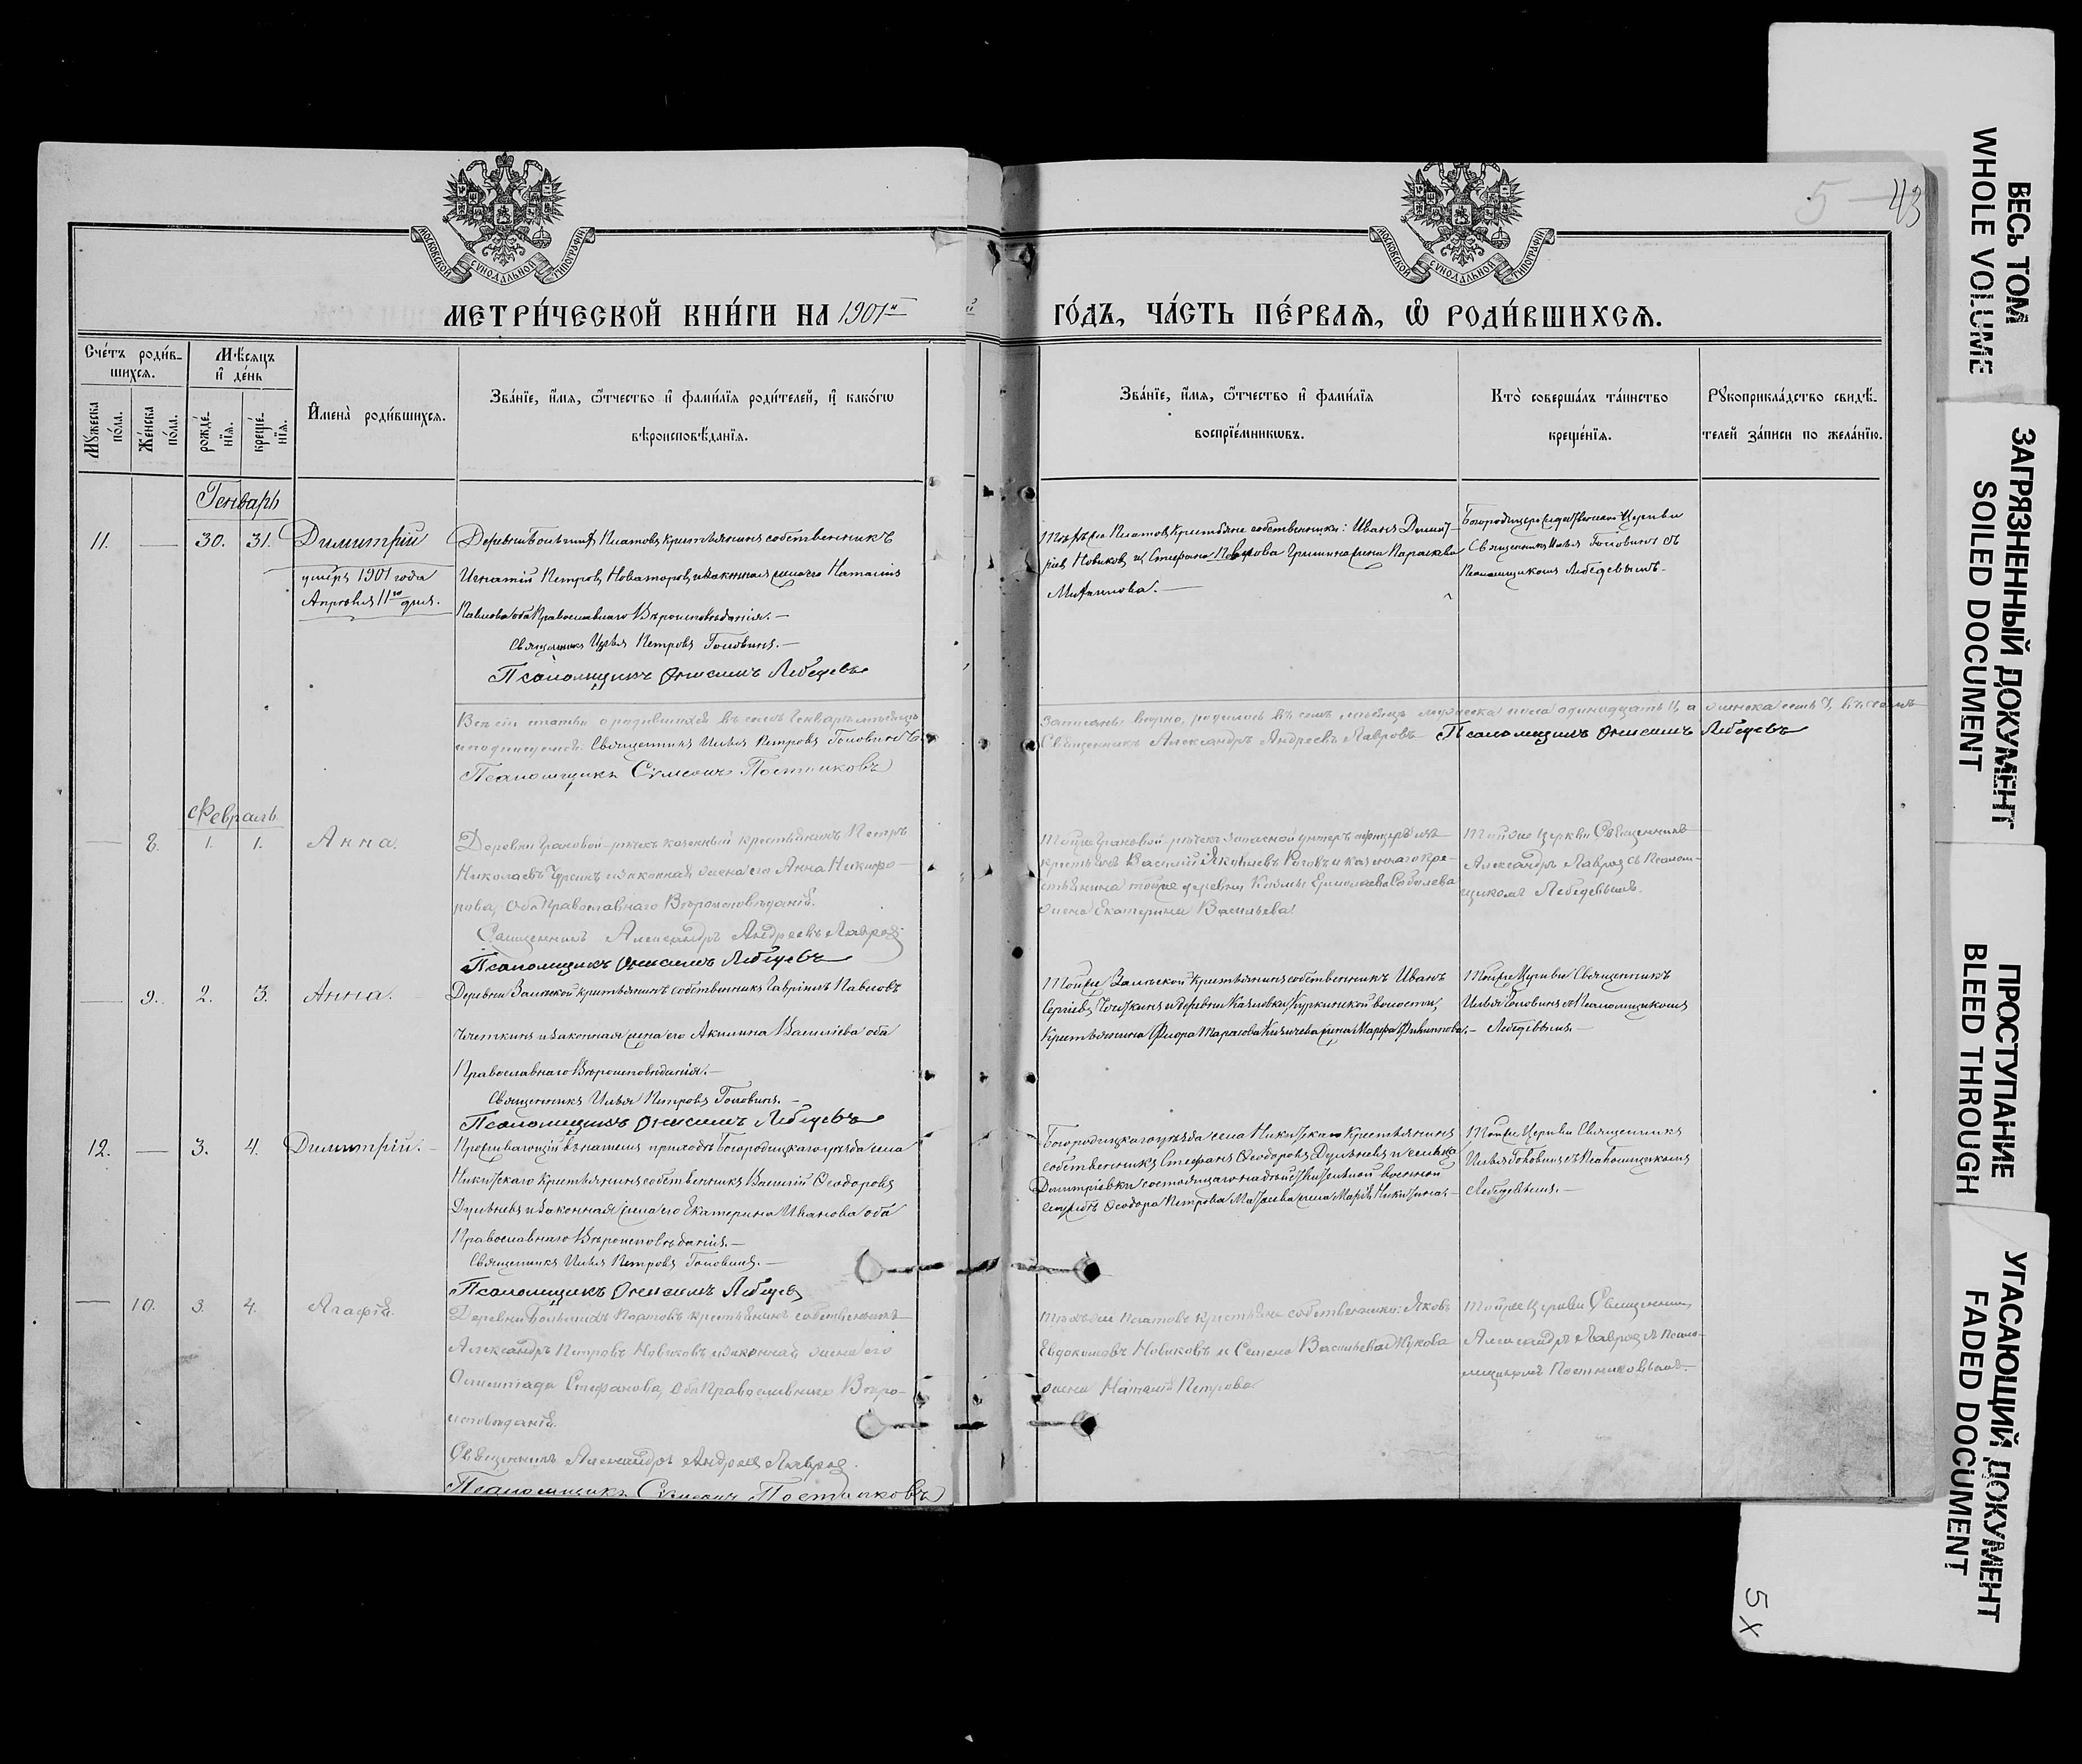 МОСКОВСКОЙ СѴНОДАЛЬНОЙ ТИПОГРАФІИ
МОСКОВСКОЙ СѴНОДАЛЬНОЙ ТИПОГРАФІИ
5 — 43
МЕТРИ́ЧЕСКОЙ КНИ́ГИ НА 1901й
ГО́ДЪ, ЧА́СТЬ ПЕ́РВАѦ, Ѡ҆ РОДИ́ВШИХСѦ.
Сче́тъ роди́в-
шихсѧ.
Мꙋ́жеска по́ла.
Же́нска по́ла.
Мѣ́сѧцъ
и҆ де́нь
рожде́-
нїѧ.
креще́-
нїѧ.
И҆мена̀ роди́вшихсѧ.
Зва́нїе, и҆́мѧ, ѻ҆́тчество и҆ фами́лїѧ роди́телей, и҆ како́гѡ
вѣроисповѣ́данїѧ.
Зва́нїе, и҆́мѧ, ѻ҆́тчество и҆ фами́лїѧ
воспрїе́мникѡвъ.
Кто̀ соверша́лъ та́инство
креще́нїѧ.
Рꙋкоприкла́дство свидѣ́-
телей за́писи по жела́нїю.
Генварь
11. — 30. 31. Димитрій
умеръ 1901 года
Апрѣля 11го дня.
Деревни Большихъ Платовъ крестьянинъ собственникъ
Игнатій Петровъ и законная жена его Наталія
Павлова оба Православнаго Вѣроисповѣданія.—
Священникъ Илья Петровъ Головинъ.—
Псаломщикъ Онисимъ Лебедевъ
Тѣхъ же Платовъ Крестьяне собственники: Иванъ Димит-
ріевъ Новиковъ и Стефана жена Параскева
Богородицерождественской Церкви
Священникъ Илья Головинъ съ
Псаломщикомъ Лебедевымъ.
Всѣ сіи статьи о родившихся въ семъ Генварѣ мѣсяцѣ
Священникъ Илья Петровъ Головинъ.
Псаломщикъ Сѵмеонъ Постниковъ
записаны вѣрно, родилось въ семъ мѣсяцѣ мужеска пола одинадцать 11, а женска семь 7,
Священникъ Александръ Андреевъ Лавровъ Псаломщикъ Онисимъ Лебедевъ
Февраль
— 8. 1. 1. Анна.
крестьянинъ Петръ
Николаевъ и законная жена его Анна Никифо-
рова, Оба Православнаго Вѣроисповѣданія.
Священникъ Александръ Андреевъ Лавровъ
Псаломщикъ Онисимъ Лебедевъ
запасной унтеръ офицеръ изъ
крестьянъ Василій Яковлевъ и казеннаго кре-
стьянина тойже деревни Козьмы Ермолаева Соболева
жена Екатерина Васильева
Тойже церкви Священникъ
Александръ Лавровъ съ Псалом-
щикомъ Лебедевымъ.
— 9. 2. 3. Анна.
Деревни Крестьянинъ собственникъ Гавріилъ Павловъ
и законная жена его Акилина Васильева оба
Православнаго Вѣроисповѣданія.—
Священникъ Илья Петровъ Головинъ.—
Псаломщикъ Онисимъ Лебедевъ
Тойже Крестьянинъ собственникъ Иванъ
Сергіевъ и деревни Куркинской волости,
Крестьянина Тарасова жена Марѳа Филиппова.—
Тойже Церкви Священникъ
Илья Головинъ съ Псаломщикомъ
Лебедевымъ.—
12. — 3. 4. Димитрій.—
Проживающій въ нашемъ приходѣ Богородицкаго уѣзда села
Никитскаго Крестьянинъ собственникъ Василій Ѳеодоровъ
и законная жена его Екатерина Иванова оба
Православнаго Вѣроисповѣданія.—
Священникъ Илья Петровъ Головинъ.—
Псаломщикъ Онисимъ Лебедевъ
Богородицкаго уѣзда села Никитскаго Крестьянинъ
собственникъ Стефанъ Ѳеодоровъ и сельца
Димитріевки состоящаго на военной
службѣ Ѳеодора Петрова жена Никитина.—
Тойже Церкви Священникъ
Илья Головинъ съ Псаломщикомъ
Лебедевымъ.—
— 10. 3. 4. Агафія.
Деревни Большихъ Платовъ крестьянинъ собственникъ
Александръ Петровъ Новиковъ и законная жена его
Олимпіада Стефанова, Оба Православнаго Вѣро-
исповѣданія.
Священникъ Александръ Андреевъ Лавровъ.
Псаломщикъ Сѵмеонъ Постниковъ
Тѣхъ же Платовъ крестьяне собственники: Яковъ
Евдокимовъ Новиковъ и Семена Васильева Жукова
жена Наталія Петрова
Тойже Церкви Священникъ
Александръ Лавровъ съ Псалом-
щикомъ Постниковымъ.
ВЕСЬ ТОМ
WHOLE VOLUME
ЗАГРЯЗНЕННЫЙ ДОКУМЕНТ
SOILED DOCUMENT
ПРОСТУПАНИЕ
BLEED THROUGH
УГАСАЮЩИЙ ДОКУМЕНТ
FADED DOCUMENT
5X